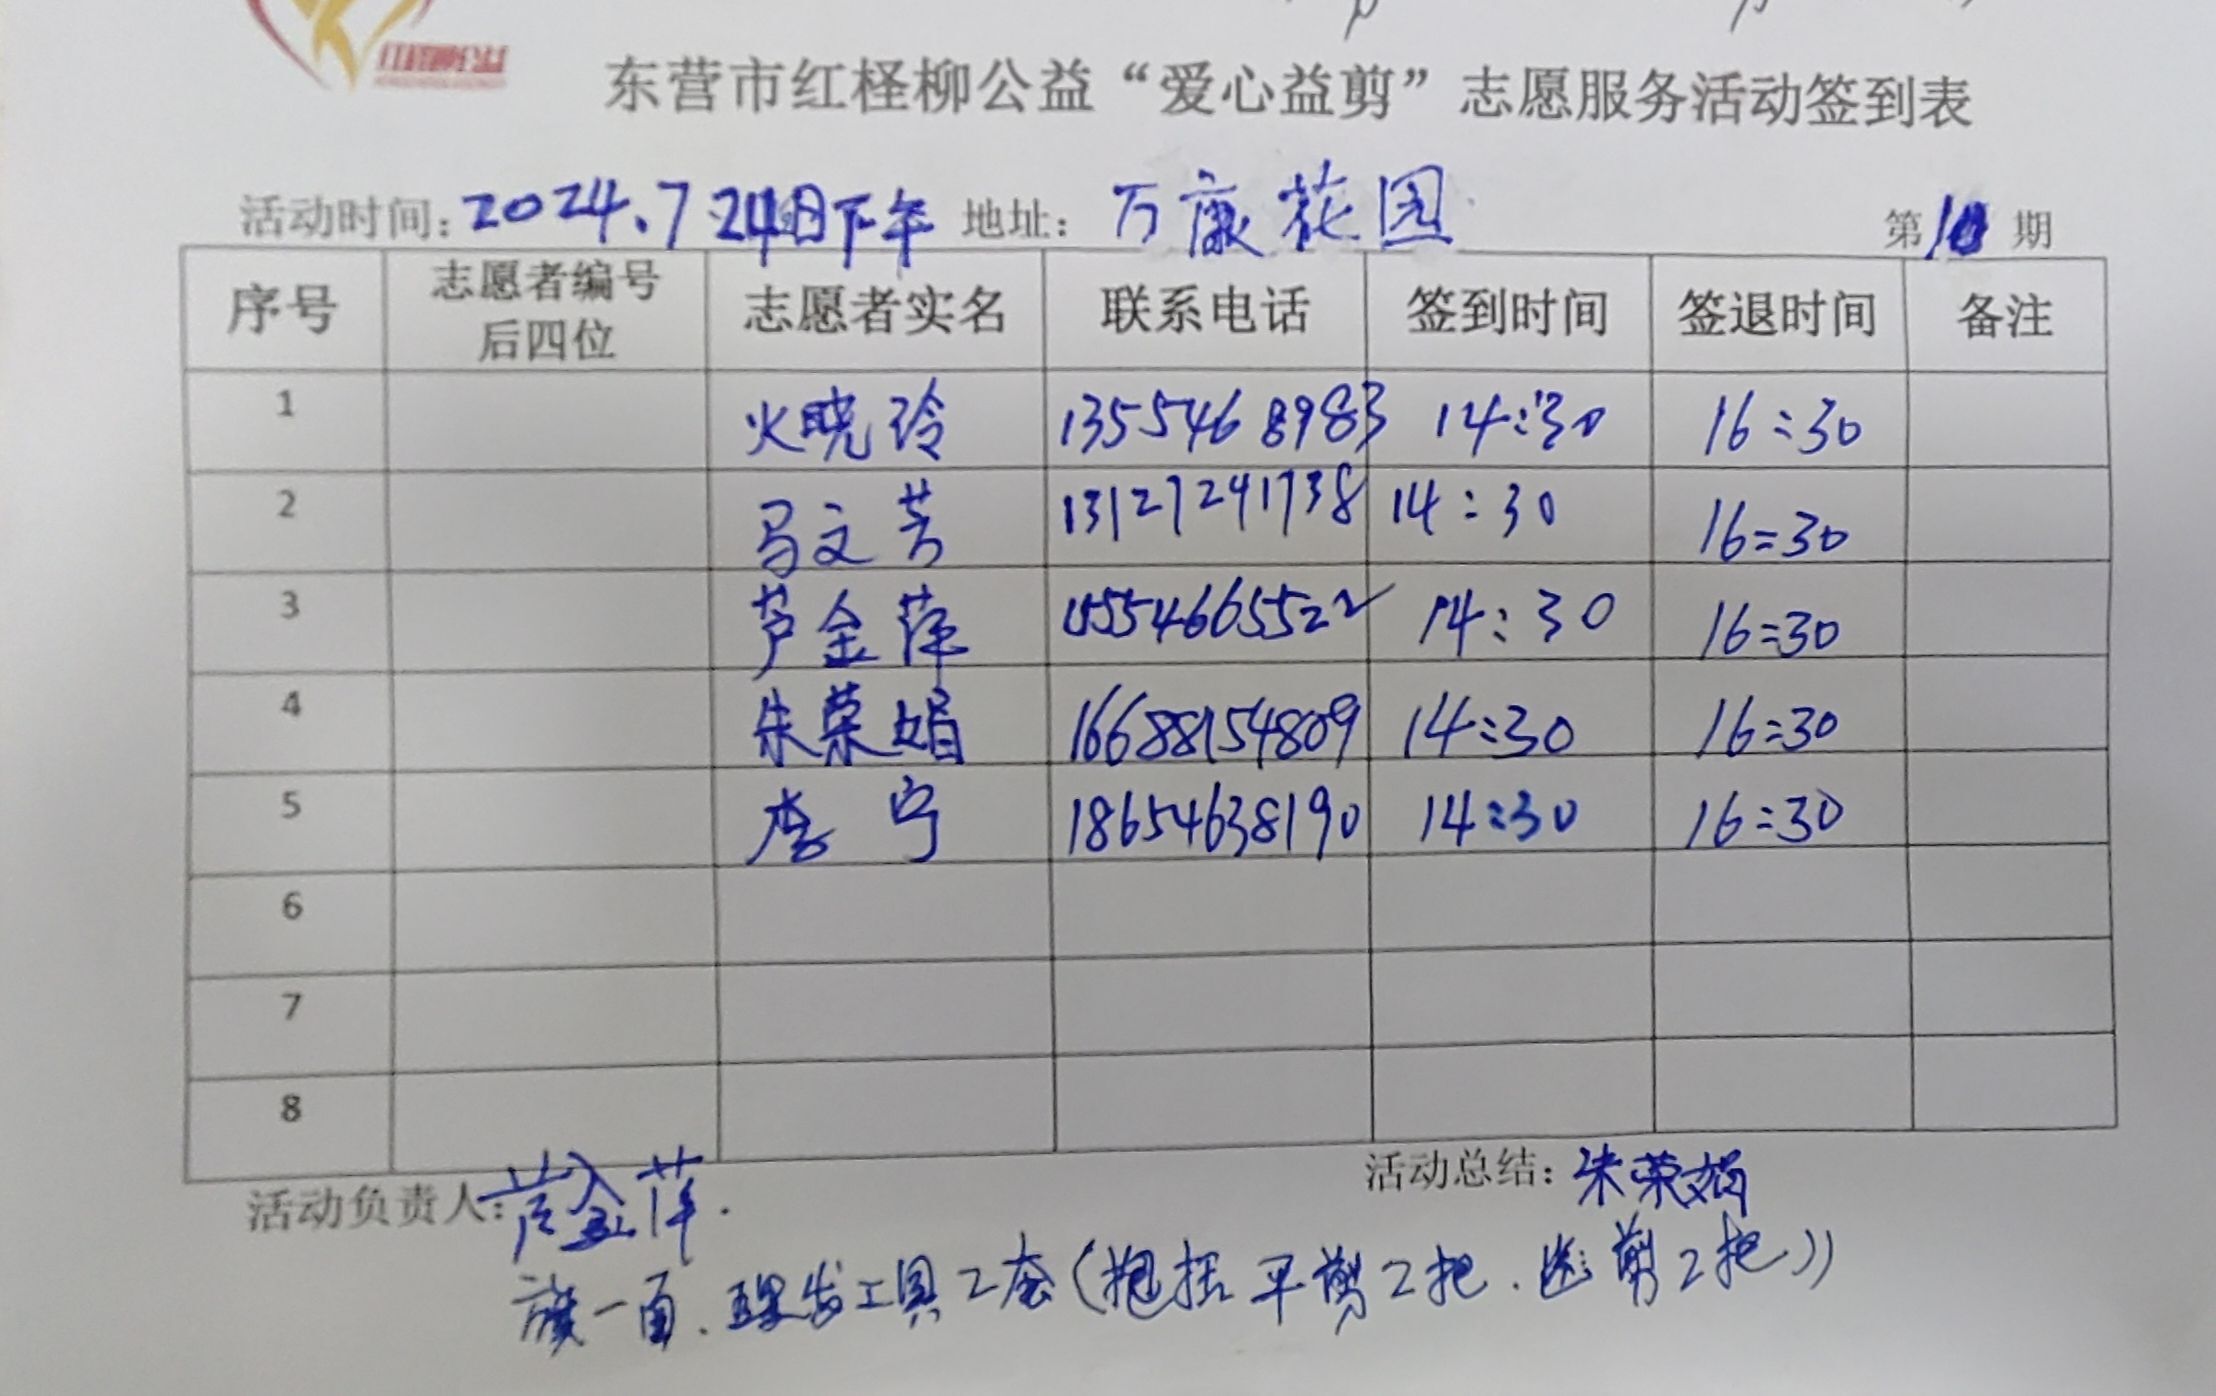 红柽柳公益
东营市红柽柳公益“爱心益剪”志愿服务活动签到表
活动时间：2024.7 24日下午 地址：万康花园 第10期
序号 志愿者编号后四位 志愿者实名 联系电话 签到时间 签退时间 备注
1 火晓玲 13554689983 14:30 16:30
2 马文芳 13127291738 14:30 16:30
3 芦金萍 15554665522 14:30 16:30
4 朱荣娟 16688154809 14:30 16:30
5 李宁 18654638190 14:30 16:30
6
7
8
活动负责人：芦金萍. 活动总结：朱荣娟
旗一面、理发工具2套(抱括平剪2把. 剪2把))